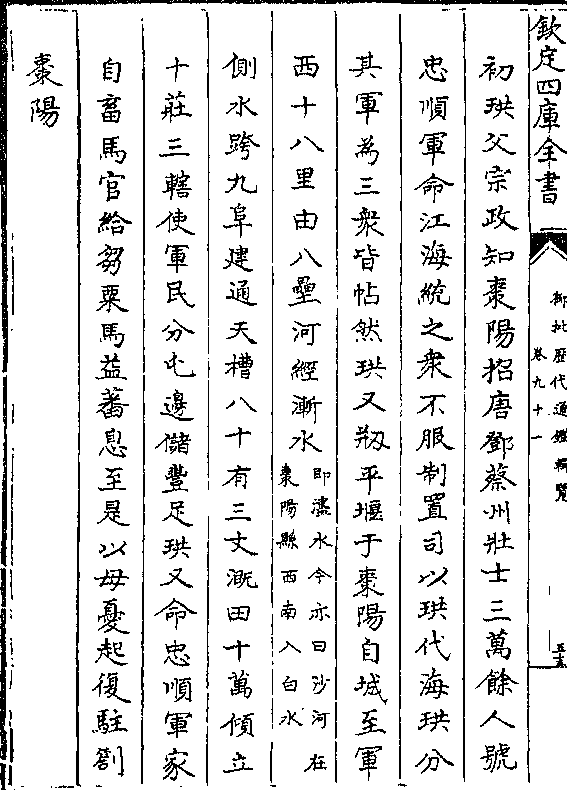 欽定四庫全書
御批歷代通鑑輯覽
卷九十一
初珙父宗政知棗陽招唐鄧蔡州壯士三萬餘人號
忠順軍命江海統之衆不服制置司以珙代海珙分
其軍為三衆皆帖然珙又剏平堰于棗陽自城至軍
西十八里由八壘河經漸水
即瀘水今亦曰沙河在
棗陽縣西南入白水
側水跨九阜建通天槽八十有三丈溉田十萬傾立
十莊三轄使軍民分屯邊儲豐足珙又命忠順軍家
自畜馬官給芻粟馬益蕃息至是以母憂起復駐劄
棗陽